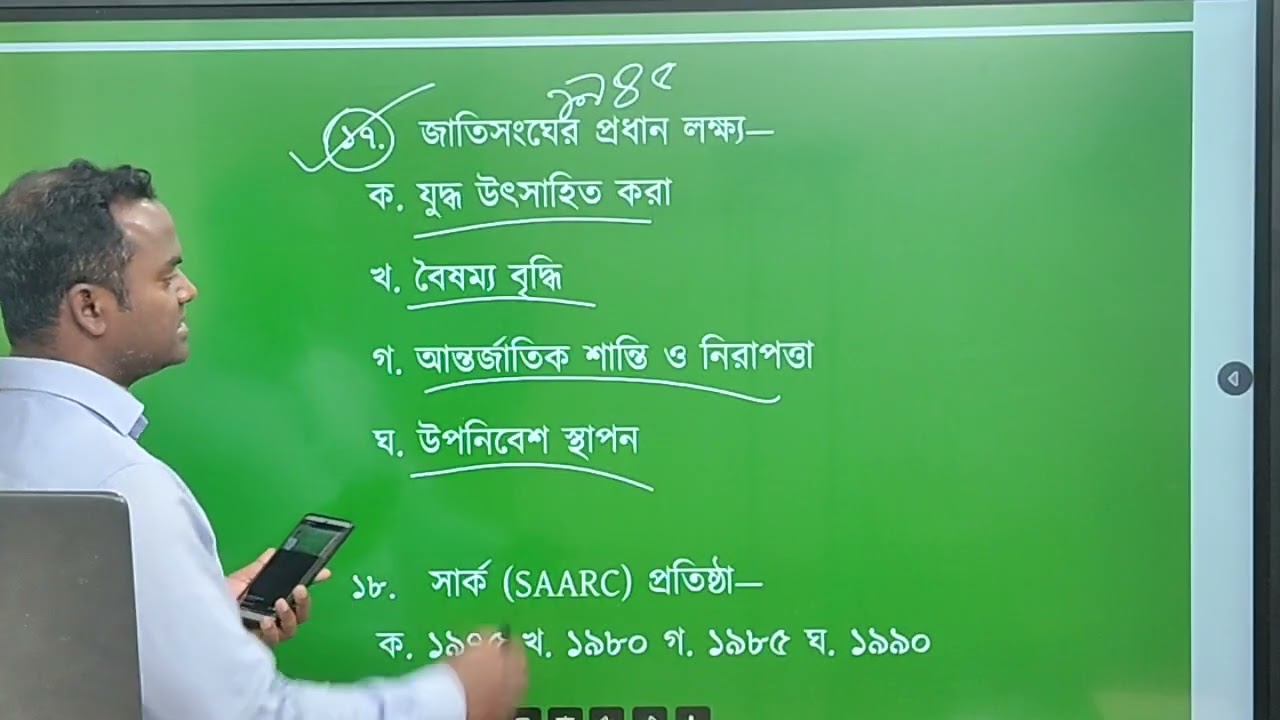 ১৯৪৫
১৭. জাতিসংঘের প্রধান লক্ষ্য—
ক. যুদ্ধ উৎসাহিত করা
খ. বৈষম্য বৃদ্ধি
গ. আন্তর্জাতিক শান্তি ও নিরাপত্তা
ঘ. উপনিবেশ স্থাপন
১৮. সার্ক (SAARC) প্রতিষ্ঠা—
ক. খ. ১৯৮০ গ. ১৯৮৫ ঘ. ১৯৯০